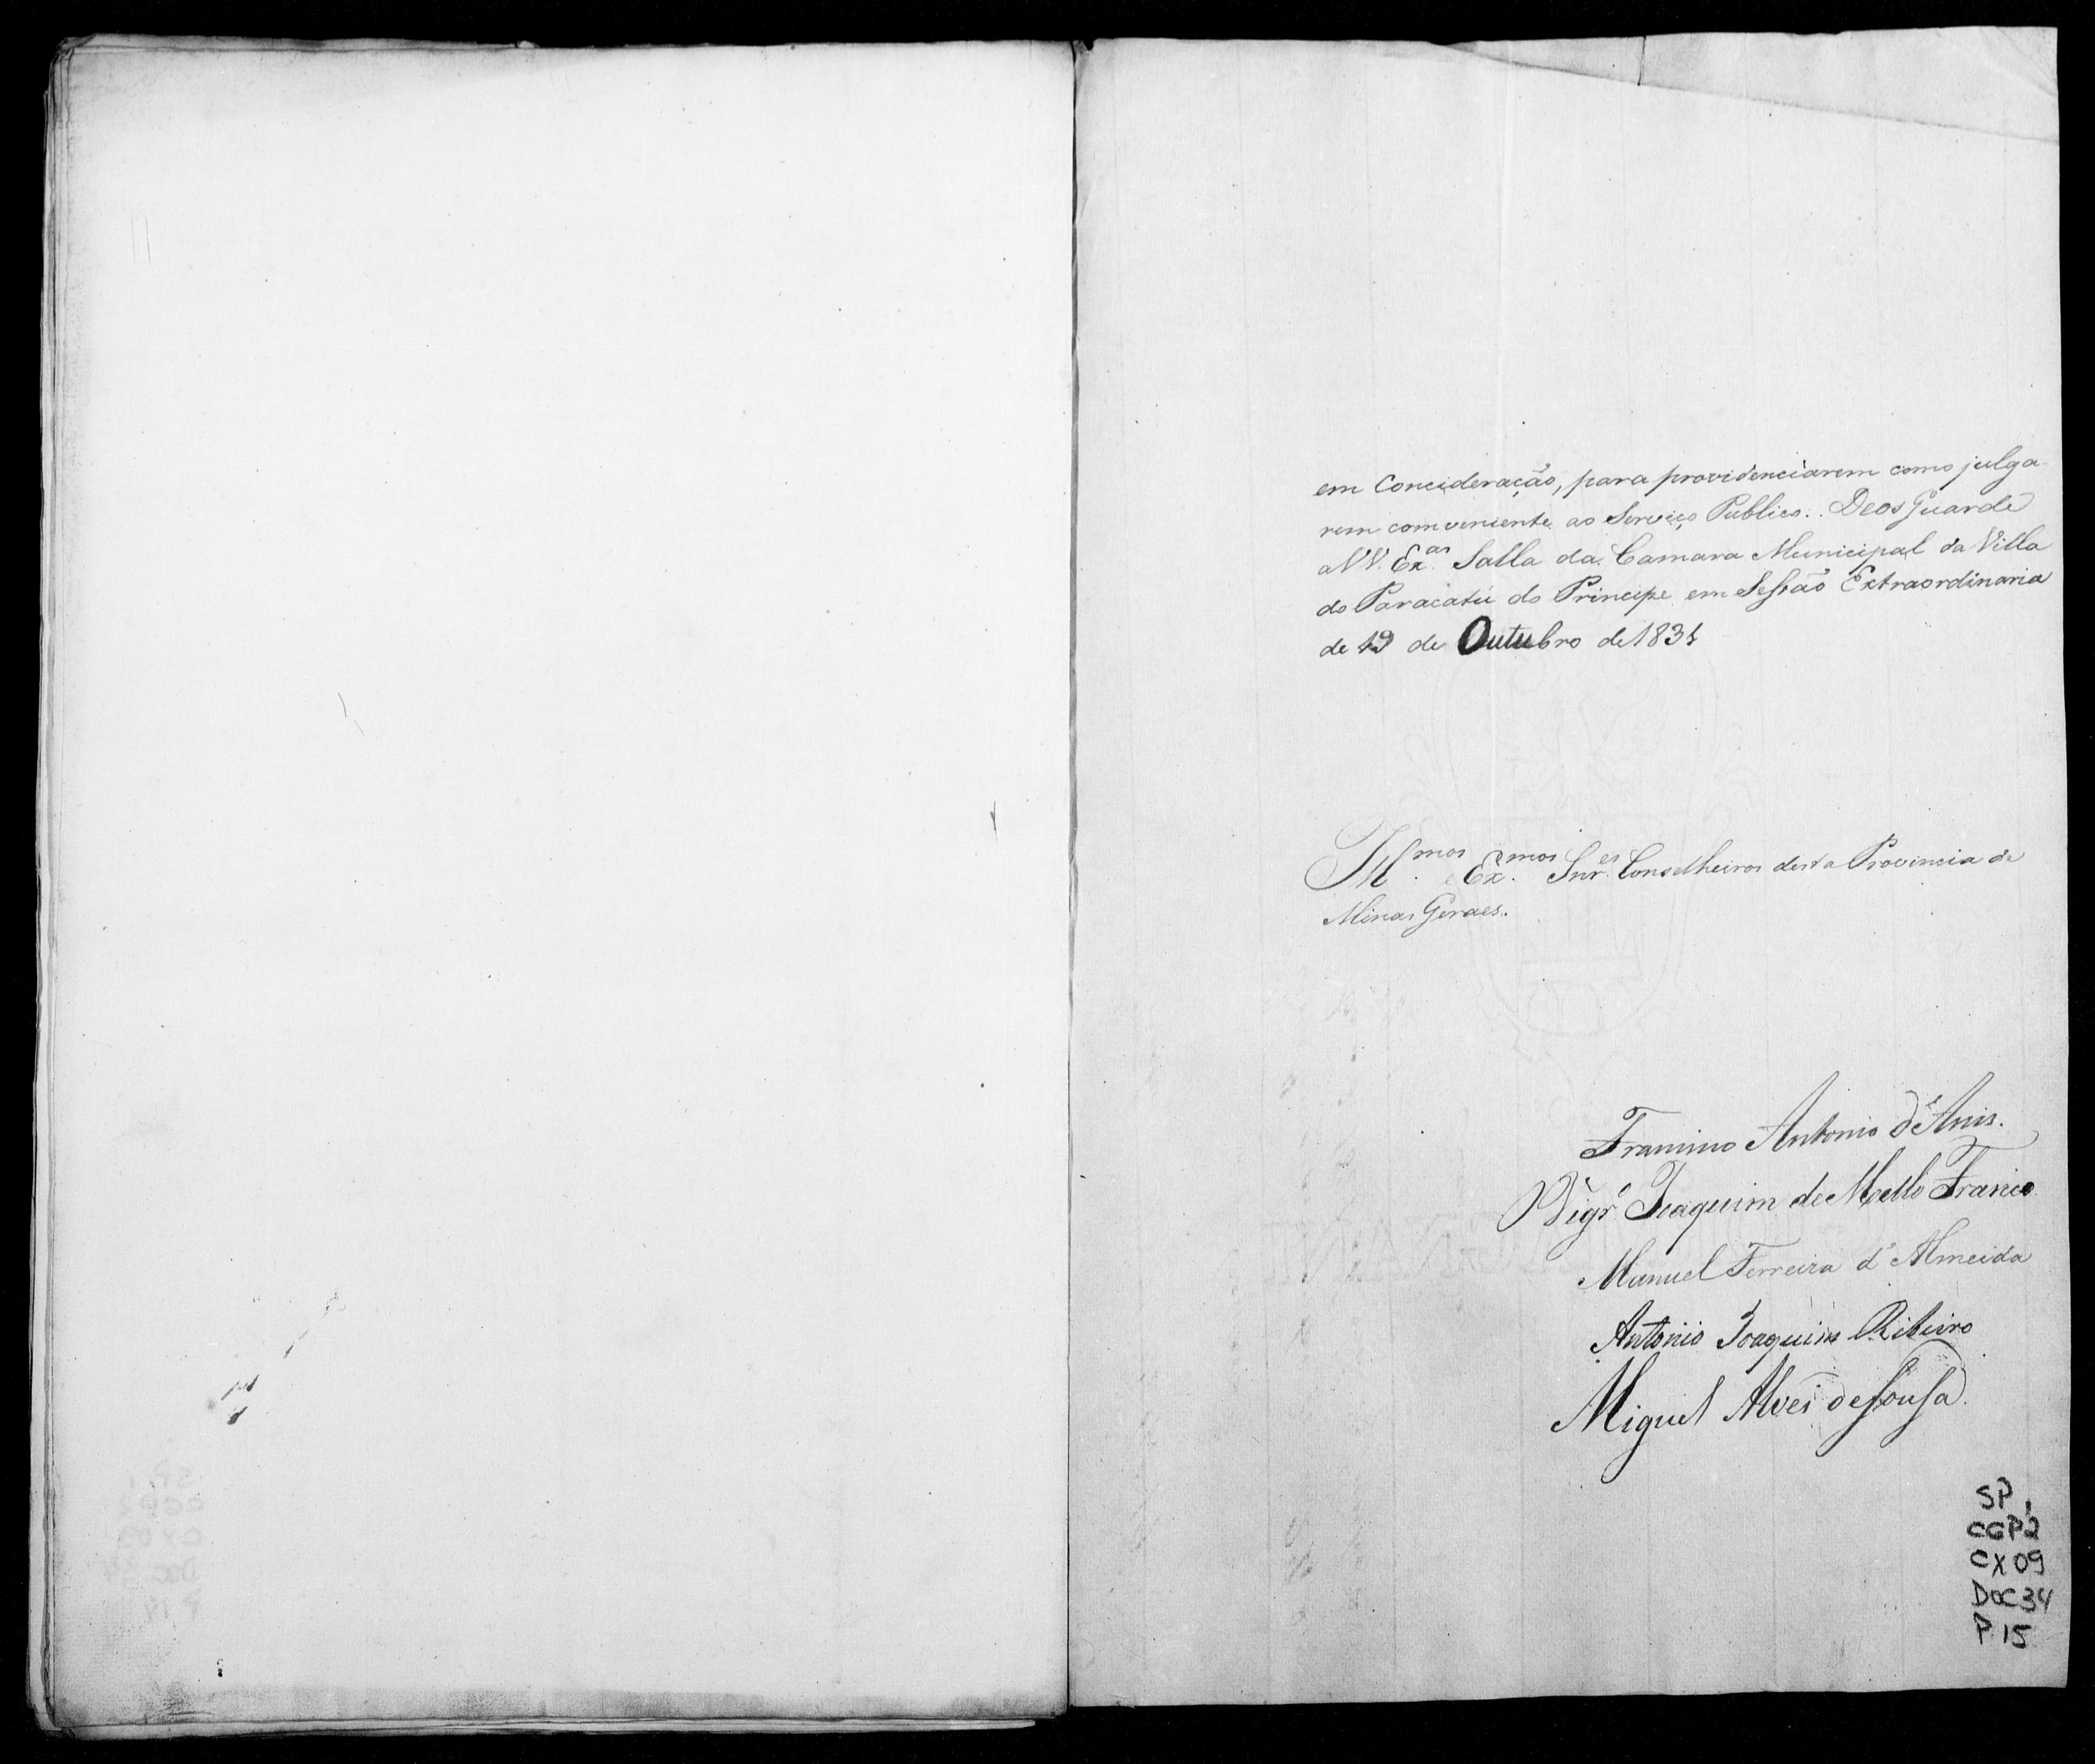 em Concideração, para providenciarem como julga
rem comveniente ao Serviço Publico. Deos Guarde
a VV. Ex.as Salla da Camara Municipal da Villa
do Paracatú do Principe em Sessão Extraordinaria
de 19 de Outubro de 1831
Ill.mos e Ex.mos Snr.es Conselheiros desta Provincia de
Minas Geraes.
Antonio d'
Vigr.o Joaquim de Mello Franco
Manuel Ferreira d'Almeida
Antonio Joaquim Ribeiro
Miguel Alves de Sousa
SP 1
CGP2
CX 09
Doc 34
P. 15